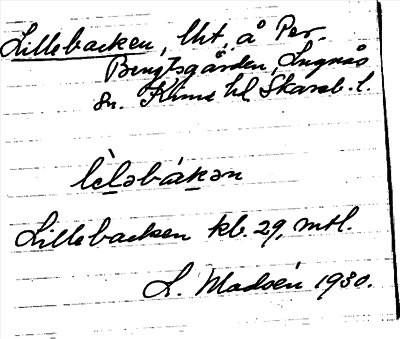 Lillebacken, lht, å Per-
Bengtsgården, Lugnås
sn. Kinne hd. Skarab. l.
lèləbákən
Lillebacken kb. 29, mtl.
L. Madsén 1930.